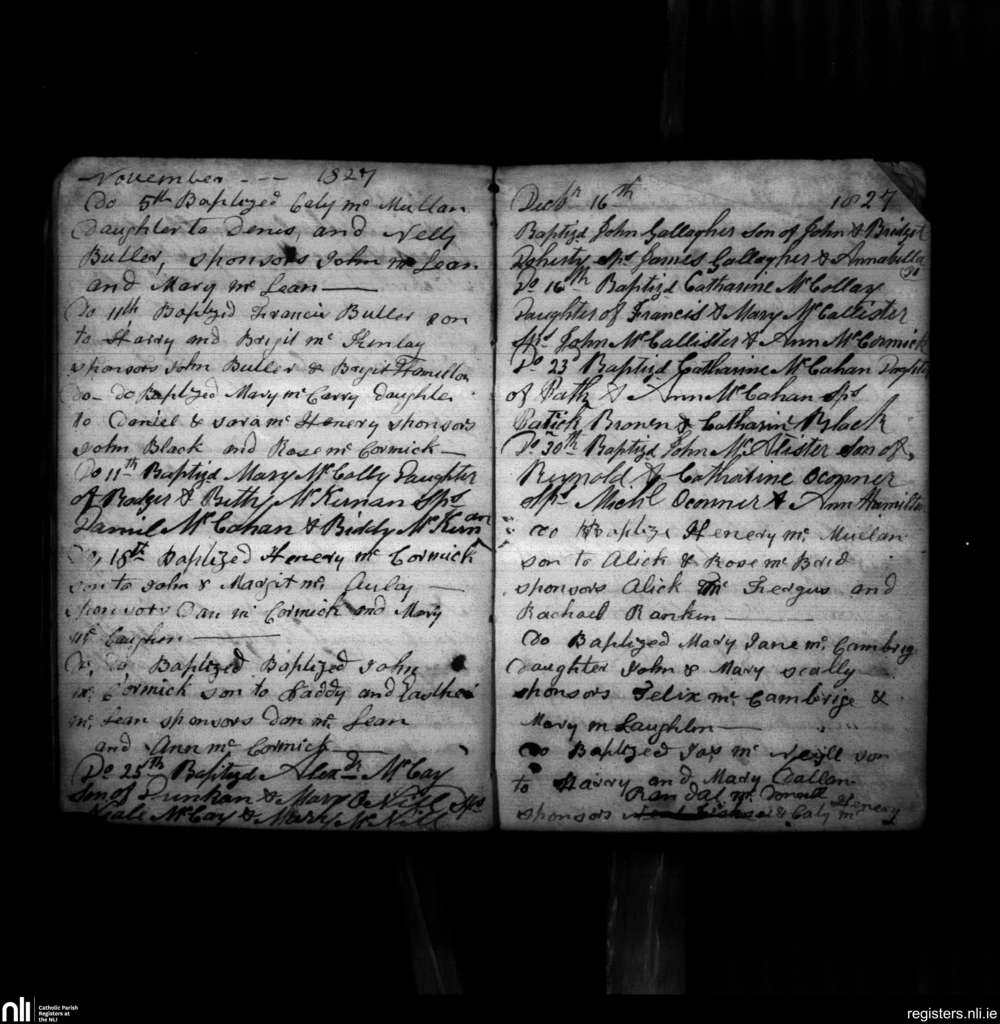 November --- 1827
Do 5th Baptized Caty mc Mullan
Daughter to Denis, and Nelly
Butler, sponsors John mc Lean
and Mary mc Lean —
Do 11th Baptized Francis Butler son
to Harry and Brigit mc Kinlay
sponsors John Butler & Brigit Hamilton
do - do Baptized Mary mc Carry daughter
to Daniel & sara mc Henery sponsors
John Black and Rose mc Cormick —
Do 11th Baptizd Mary McCally Daughter
of Rodger & Betty McKirnan Sps
Daniel McCahan & Biddy McKirnan
Do, 18th Baptized Henery mc Cormick
son to John & Margit mc Aulay —
sponsors Dan mc Cormick and Mary
mc Caughen —
Do Do Baptized Baptized John
mc Cormick son to Paddy and Easther
mc Lean sponsors Don mc Lean
and Ann mc Cormick —
Do 25th Baptizd Alexdr McCay
son of Dunkan & Mary O Nill Sps
McCay & Mary McNill
Decbr 16th 1827
Baptizd John Gallagher son of John & Bridgit
Doherty Sps James Gallagher & Annabella Do
Do 16th Baptizd Catharine McCollay
Daughter of Francis & Mary McCallister
Sps John McCallister & Ann McCormick
Do 23 Baptizd Catharine McCahan Daughter
of Patk & Ann McCahan Sps
Patick Brown & Catharine Black
Do 30th Baptizd John McAlister son of
Reynold & Catharine Oconner
Sps Michl Oconner & Ann Hamilton
do Baptize Henery mc Mullan
son to Alick & Rose mc Brid
sponsors Alick mc Fergus and
Rachael Rankin —
Do Baptized Mary Jane mc Cambrig
Daughter John & Mary scally
sponsors Felix mc Cambrige &
Mary m Laughlin —
Do Baptized Jas mc Neyll son
to Harry and Mary Dallan
Randal mc Donnell
sponsors & Caty mc Henery
nli Catholic Parish
Registers at
the NLI
registers.nli.ie